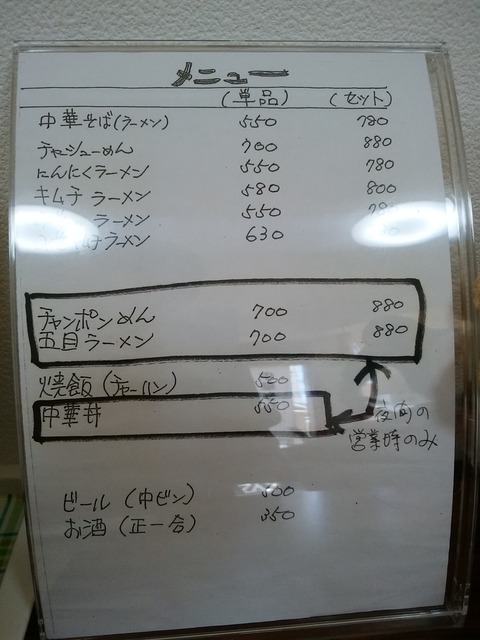 メニュー
(単品) (セット)
中華そば(ラーメン) 550 780
チャーシューめん 700 880
にんにくラーメン 550 780
キムチラーメン 580 800
ラーメン 550
ラーメン 630
チャンポンめん 700 880
五目ラーメン 700 880
焼飯(チャーハン) 500
中華丼 550
夜間の
営業時のみ
ビール(中ビン) 500
お酒(正一合) 350